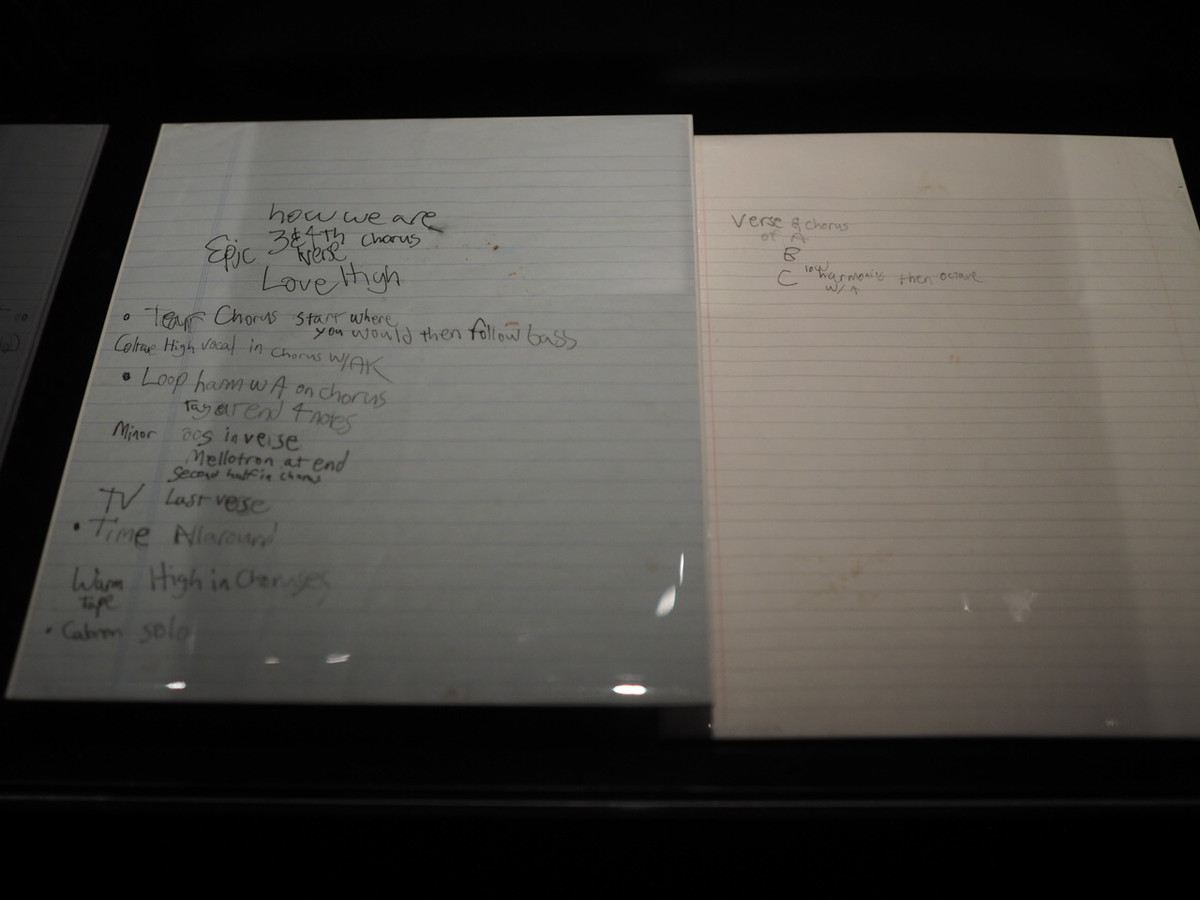 how we are
3&4th chorus
Epic verse
Love High
• Tear Chorus start where
you would then follow bass
High vocal in chorus W/AK
• Loop harm w A on chorus
Tag at end 4 notes
Minor oos in verse
Mellotron at end
Second half in chorus
TV Last verse
• Time All around
Warm High in Choruses
Tape
• Cabron solo
Verse & chorus
of A
B
C low harmonies then octave
W/A